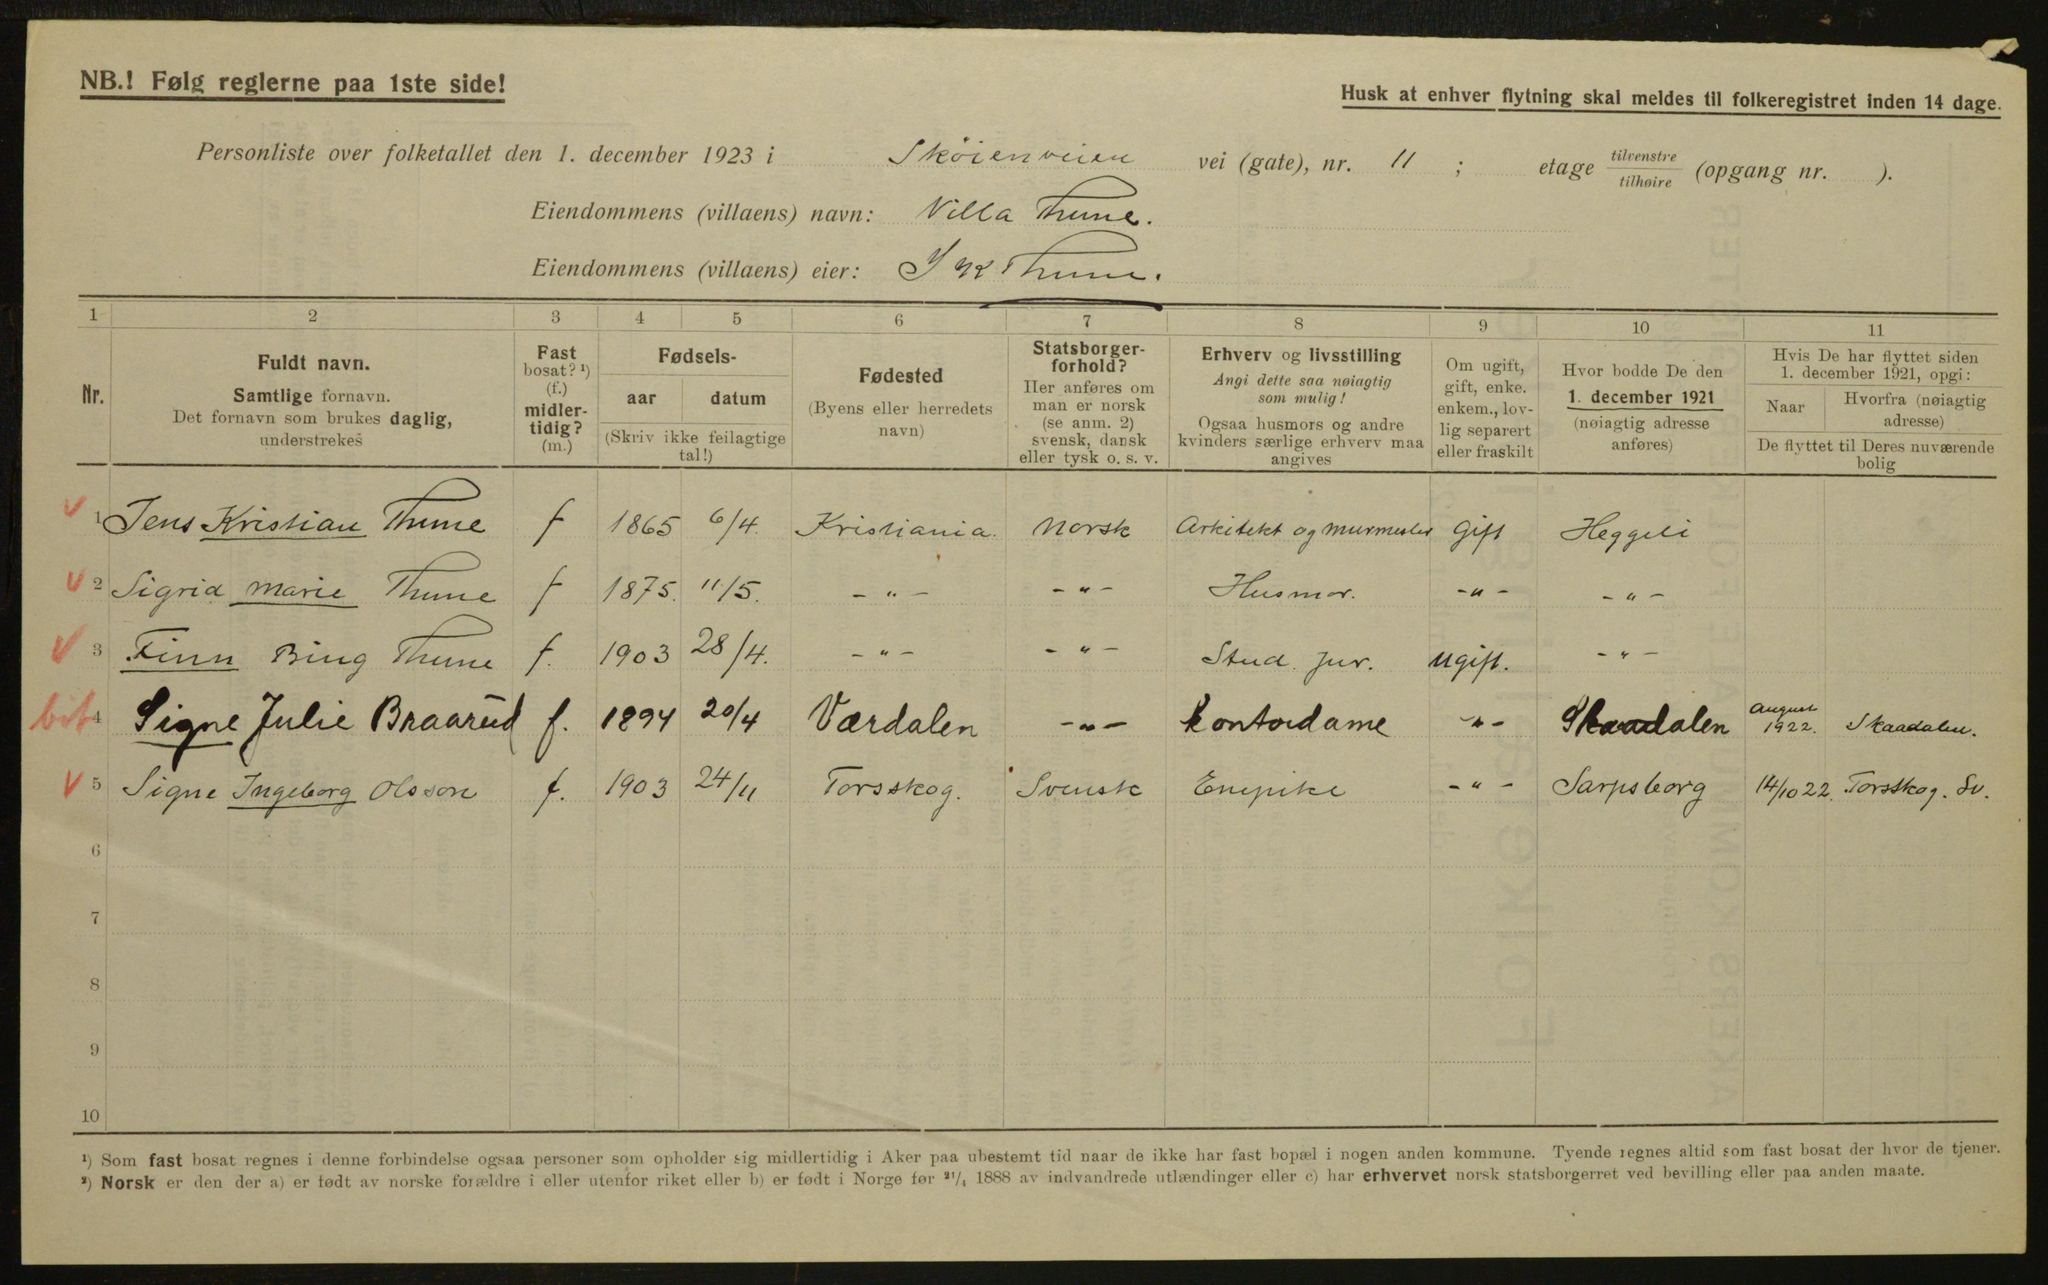 NB.! Følg reglerne paa 1ste side!
Husk at enhver flytning skal meldes til folkeregistret inden 14 dage.
Personliste over folketallet den 1. december 1923 i Skøienveien vei (gate), nr. 11 ; etage tilvenstre / tilhøire (opgang nr. ).
Eiendommens (villaens) navn: Villa Thune.
Eiendommens (villaens) eier: J K Thune.
1 2 3 4 5 6 7 8 9 10 11
Nr.
Fuldt navn.
Samtlige fornavn.
Det fornavn som brukes daglig,
understrekes
Fast
bosat? ¹)
(f.)
midler-
tidig?
(m.)
Fødsels-
aar datum
(Skriv ikke feilagtige
tal!)
Fødested
(Byens eller herredets
navn)
Statsborger-
forhold?
Her anføres om
man er norsk
(se anm. 2)
svensk, dansk
eller tysk o. s. v.
Erhverv og livsstilling
Angi dette saa nøiagtig
som mulig!
Ogsaa husmors og andre
kvinders særlige erhverv maa
angives
Om ugift,
gift, enke.
enkem., lov-
lig separert
eller fraskilt
Hvor bodde De den
1. december 1921
(nøiagtig adresse
anføres)
Hvis De har flyttet siden
1. december 1921, opgi:
Naar Hvorfra (nøiagtig
adresse)
De flyttet til Deres nuværende
bolig
1 Jens Kristian Thune f 1865 6/4. Kristiania. Norsk Arkitekt og murmester Gift Heggeli
2 Sigrid Marie Thune f 1875. 11/5. - " - - " - Husmor. - " - - " -
3 Finn Bing Thune f. 1903 28/4. - " - - " - Stud. jur. ugift. - " -
4 Signe Julie Braarud f. 1894 20/4 Værdalen - " - Kontordame - " - Skaadalen august 1922. Skaadalen.
5 Signe Ingeborg Olsson f. 1903 24/11 Torsskog. Svensk Enepike - " - Sarpsborg 14/10 22. Torsskog. Sv.
6
7
8
9
10
¹) Som fast bosat regnes i denne forbindelse ogsaa personer som opholder sig midlertidig i Aker paa ubestemt tid naar de ikke har fast bopæl i nogen anden kommune. Tyende regnes altid som fast bosat der hvor de tjener.
²) Norsk er den der a) er født av norske forældre i eller utenfor riket eller b) er født i Norge før ²¹/₄ 1888 av indvandrede utlændinger eller c) har erhvervet norsk statsborgerret ved bevilling eller paa anden maate.